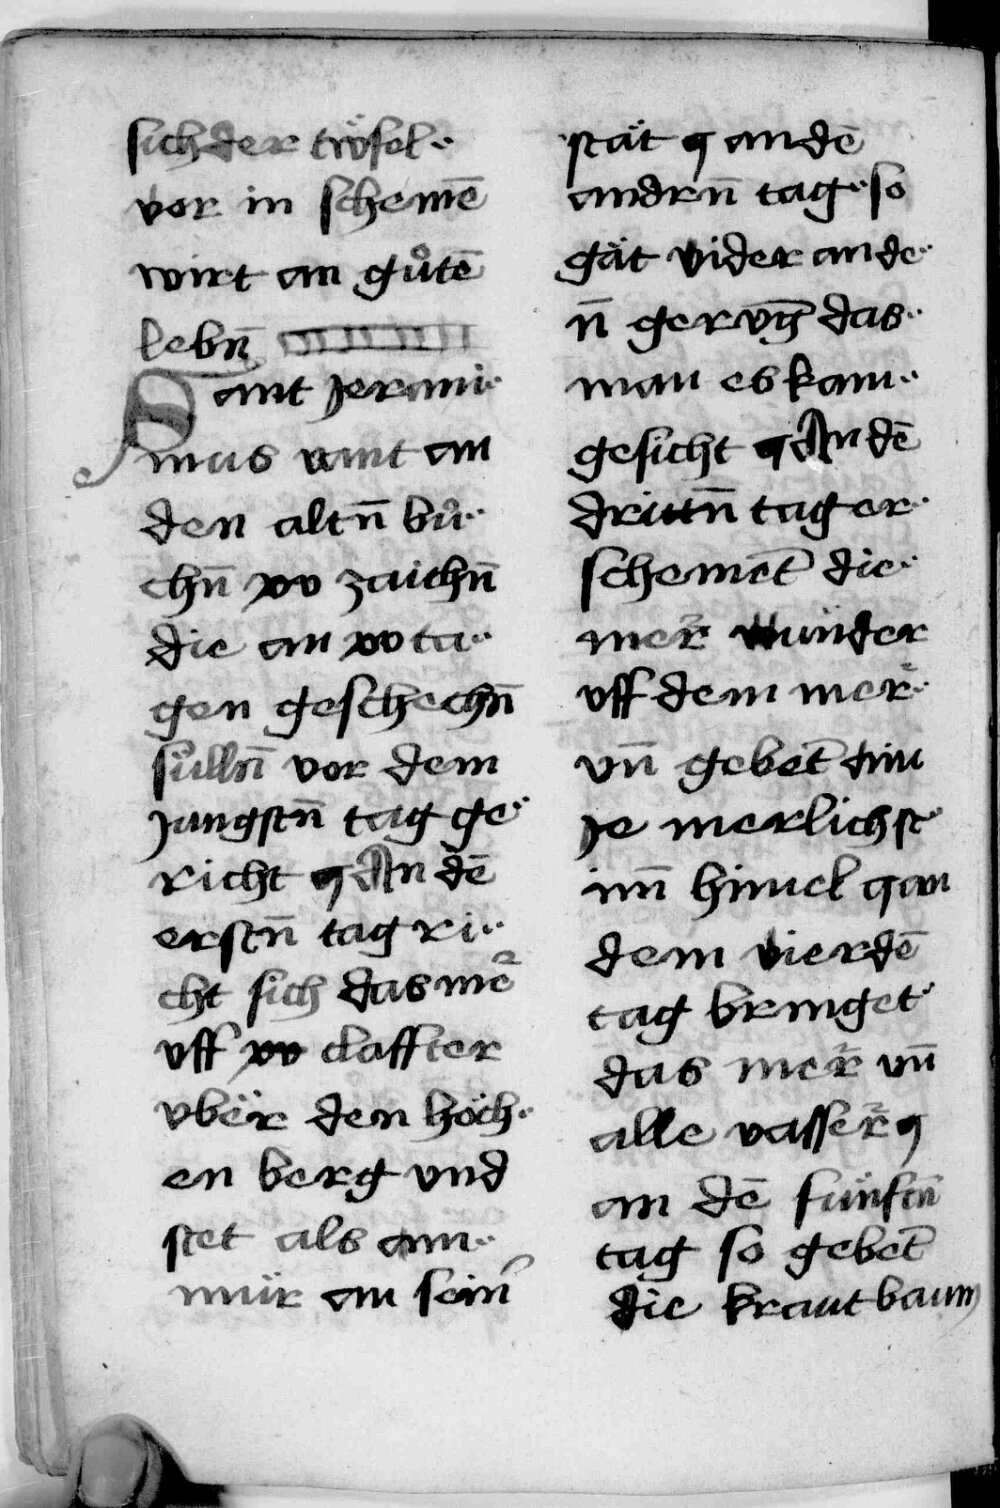 sich der twͤfel
vor in schemē
wirt an gůtē
lebn̄
Sant Jeroni
mus vint an
den altn̄ bů
chn̄ xv zaichn̄
die an xv ta
gen geschechn̄
sülln̄ vor dem
Jungstn̄ tag ge
richt An dē
erstn̄ tag ri
cht sich das mer
uff xv claffter
vber den höch
en berg vnd
stet als ain
mür an sein
stät an dē
andrn̄ tag so
gät vider an de
n̄ das
man es kam
gesicht An dē
drittn̄ tag er
schemet die
mer wunder
vff dem mer
vn̄ gebet
Je merlichst
inn̄ himel an
dem vierdē
tag bringet
das mer vn̄
alle vasser
an dē fünftn̄
tag so gebet
die kraut baum